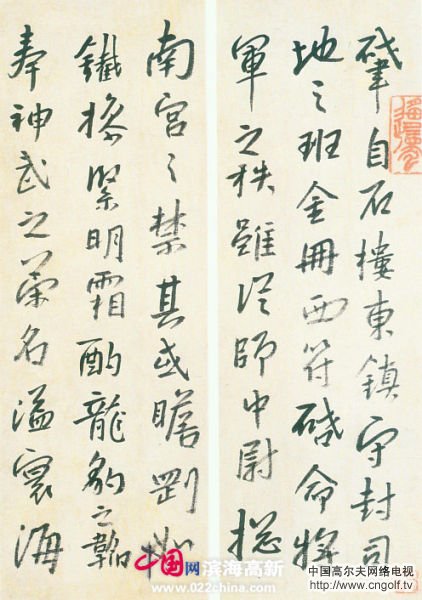 肇自石樓東鎮守封司
地之班金冊西符啓命将
軍之秩雖從師中尉総
南宮之禁其或瞻
鐵緊明霜酌龍豹之韜
奉神武之名溢寰海
中国网 滨海高新
www.022china.com
中国高尔夫网络电视
http://www.cngolf.tv